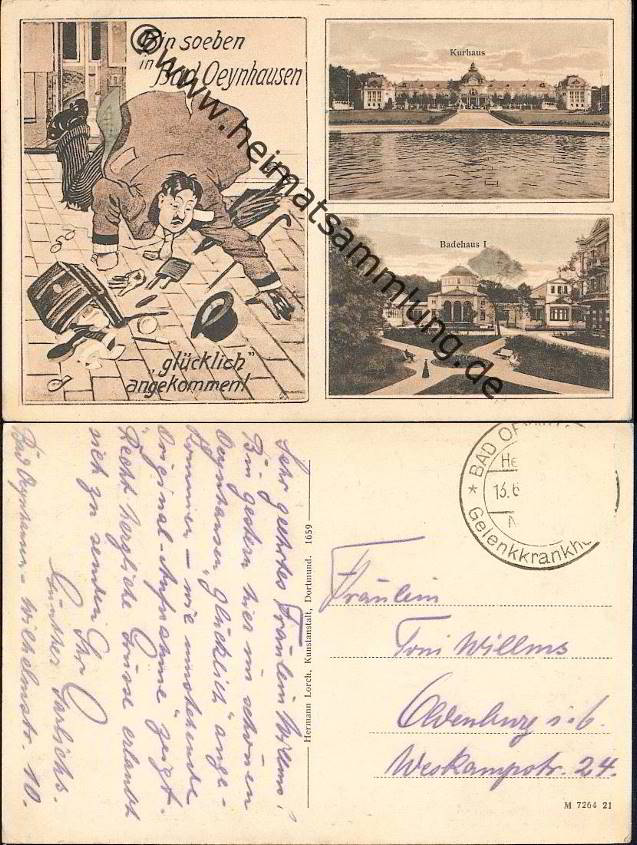 Bin soeben
in Bad Oeynhausen
„glücklich"
angekommen!
Kurhaus
Badehaus I
© www.heimatsammlung.de
Sehr geehrtes Fräulein Willms!
Bin gestern hier im schönen
Oeynhausen „glücklich" ange-
kommen – wie umstehende
Original-Aufnahme zeigt.
Recht herzliche Grüsse erlaubt
sich zu senden Ihr
Günther Garlichs.
Bad Oeynhausen – Wilhelmstr. 10.
Hermann Lorch, Kunstanstalt, Dortmund. 1659
* BAD OEYN
He
13.6
Gelenkkrankh
Fräulein
Toni Willms
Oldenburg i. o.
Weskampstr. 24.
M 7264 21